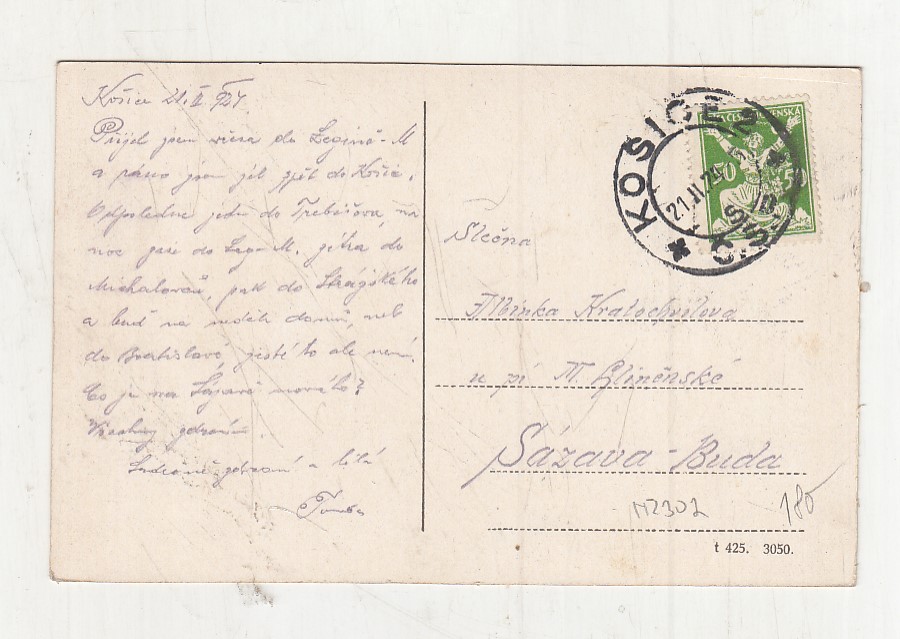 Košice 21. II. 924
Přijel jsem včera do Legině-M
a ráno jsem jel zpět do Košic.
Odpoledne jedu do Trebišova, na
noc zase do Leg. M. zítra do
Michalovců, pak do Strážského
a buď na neděli domů, neb
do Bratislavy, jisté to ale není.
Co je na Sázavě nového?
Všechny pozdravuji.
Srdečně zdraví a líbá
KOŠICE 2
21.II.24
ČESKOSLOVENSKÁ
50
Slečna
Kratochvílova
u pí M.
Sázava-Buda
MZ302
180
t 425. 3050.